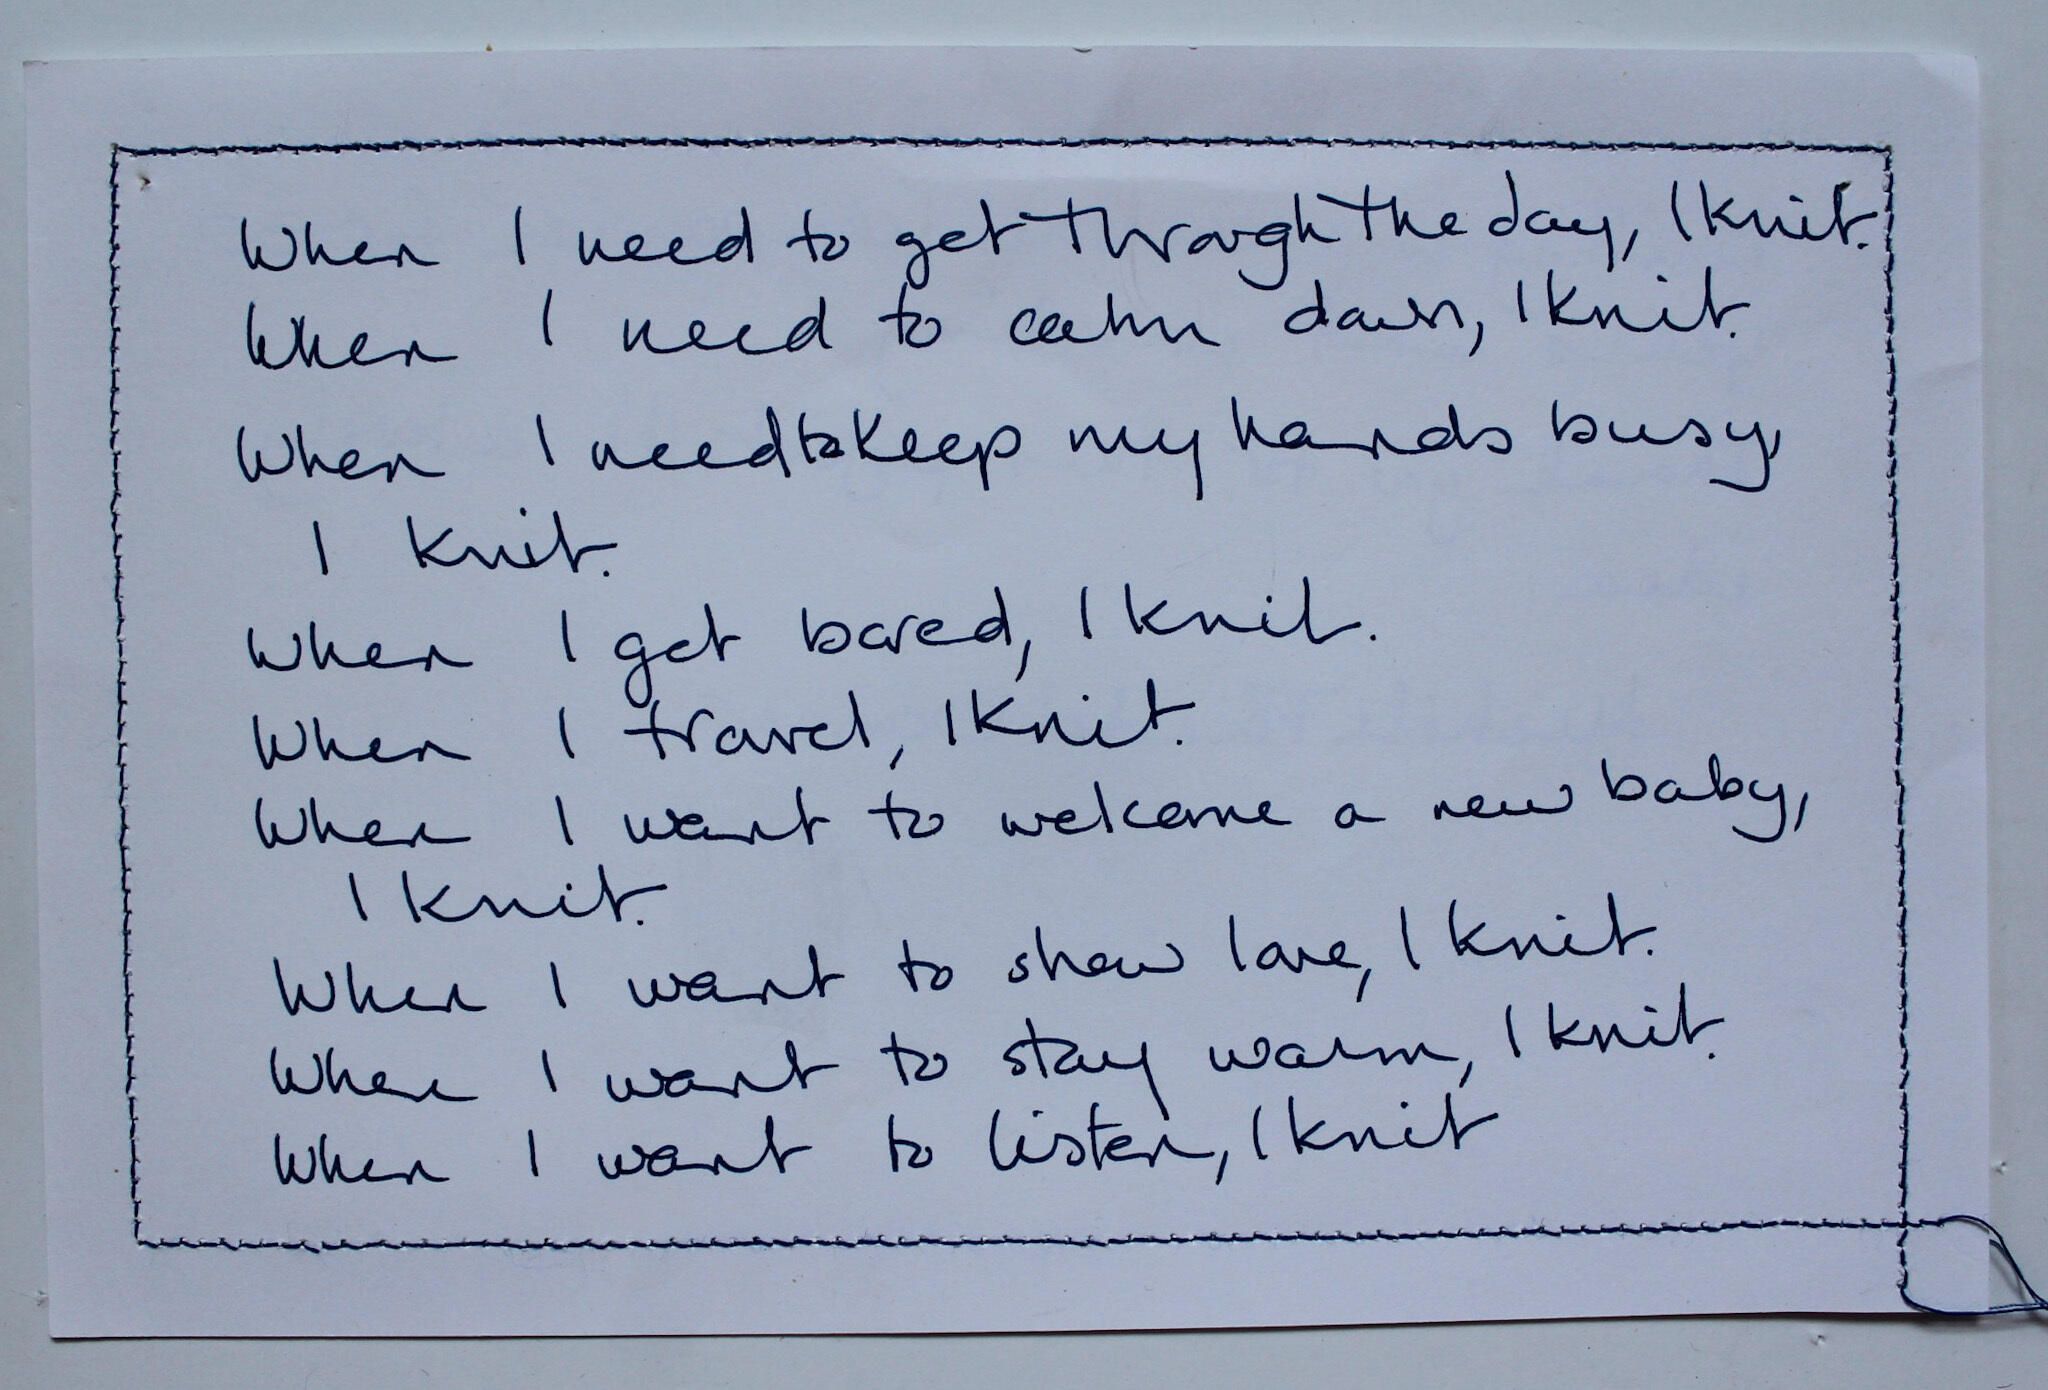 When I need to get through the day, I knit.
When I need to calm down, I knit.
When I need to keep my hands busy,
I knit.
When I get bored, I knit.
When I travel, I knit.
When I want to welcome a new baby,
I knit.
When I want to show love, I knit.
When I want to stay warm, I knit.
When I want to listen, I knit